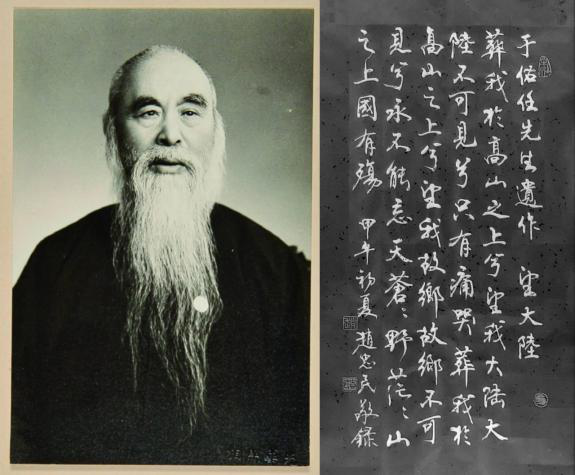 于佑任先生遺作 望大陸
葬我於高山之上兮望我大陆大
陸不可見兮只有痛哭葬我於
高山之上兮望我故鄉故鄉不可
見兮永不能忘天蒼〻野茫〻山
之上國有殤 甲午初夏 趙忠民敬録